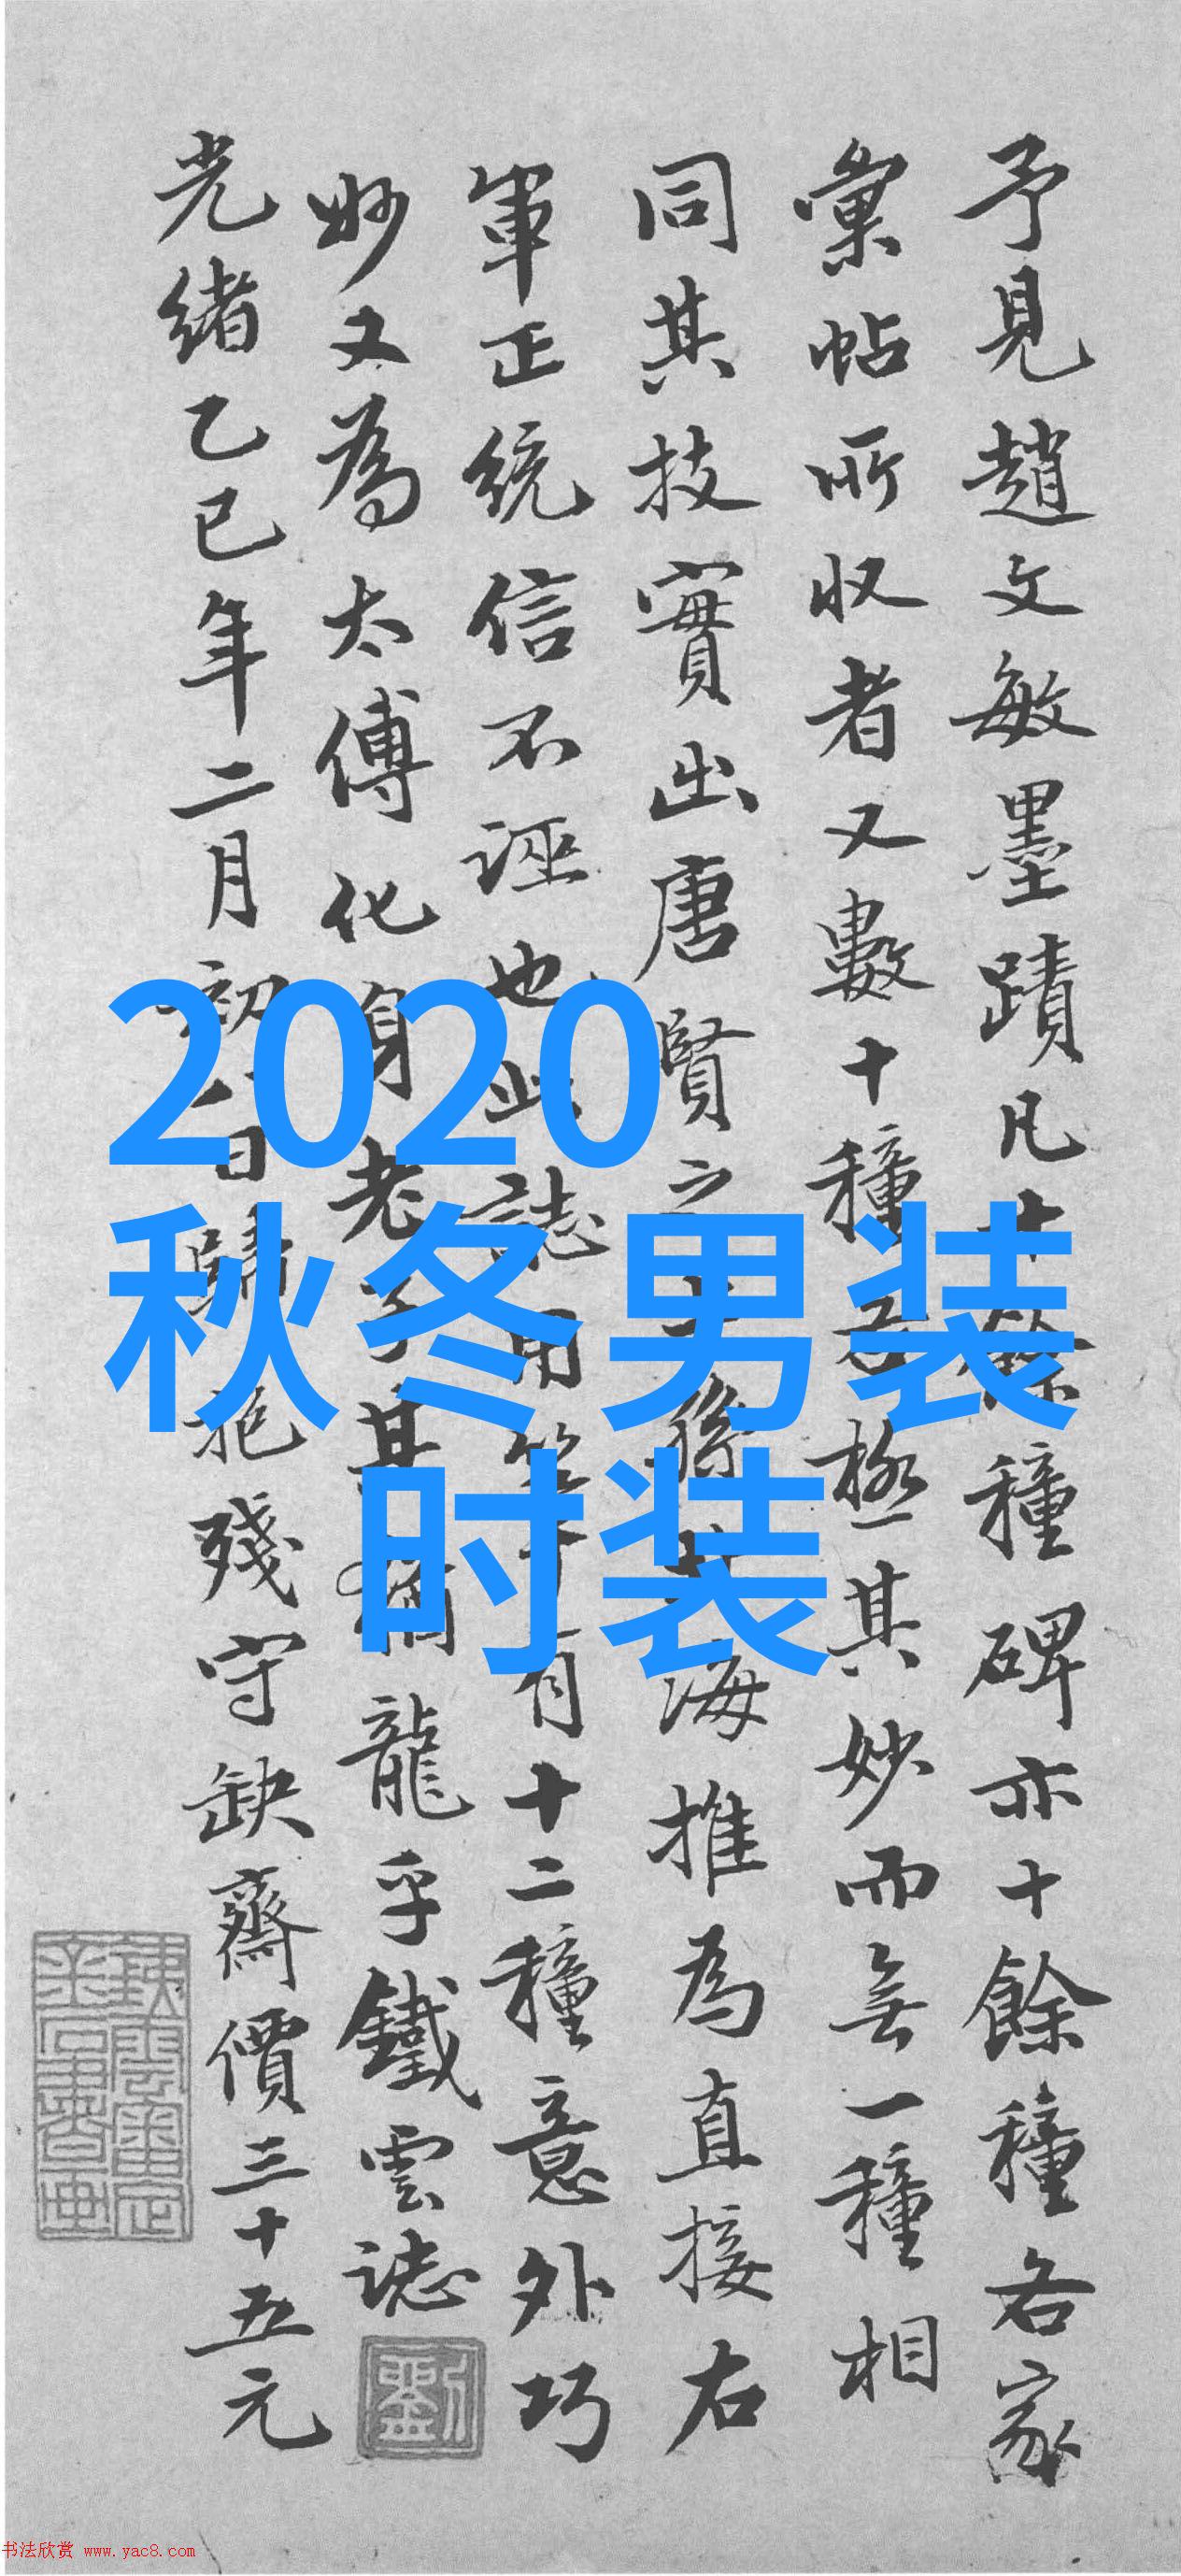 予見趙文敏墨蹟凡十餘種碑亦十餘種各家
彙帖所収者又數十種各極其妙而無一種相
同其技實出唐賢之海推為直接右
軍正統信不誣也此誌用筆有十二種意外巧
妙又為太傅化身老子其猶龍乎鐵雲誌
光緒乙巳年二月初一日歸抱殘守缺齋價三十五元
劉
2020
秋冬男装
时装
书法欣赏 www.yac8.com